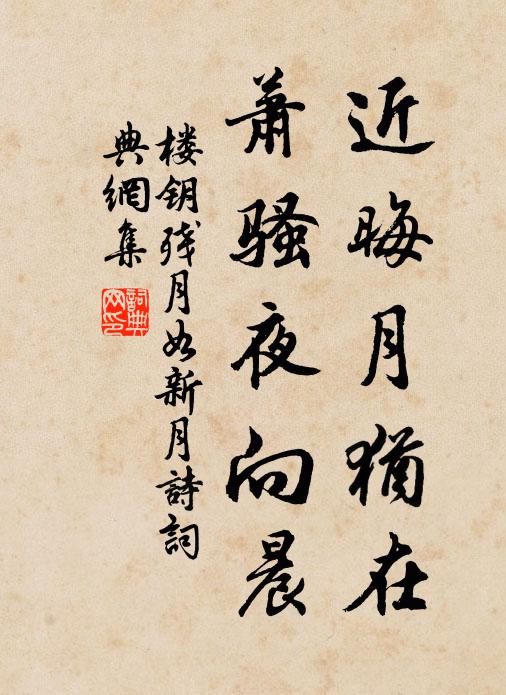 近晦月犹在
萧骚夜向晨
楼钥残月如新月詩詞
典網集
詞典
网印